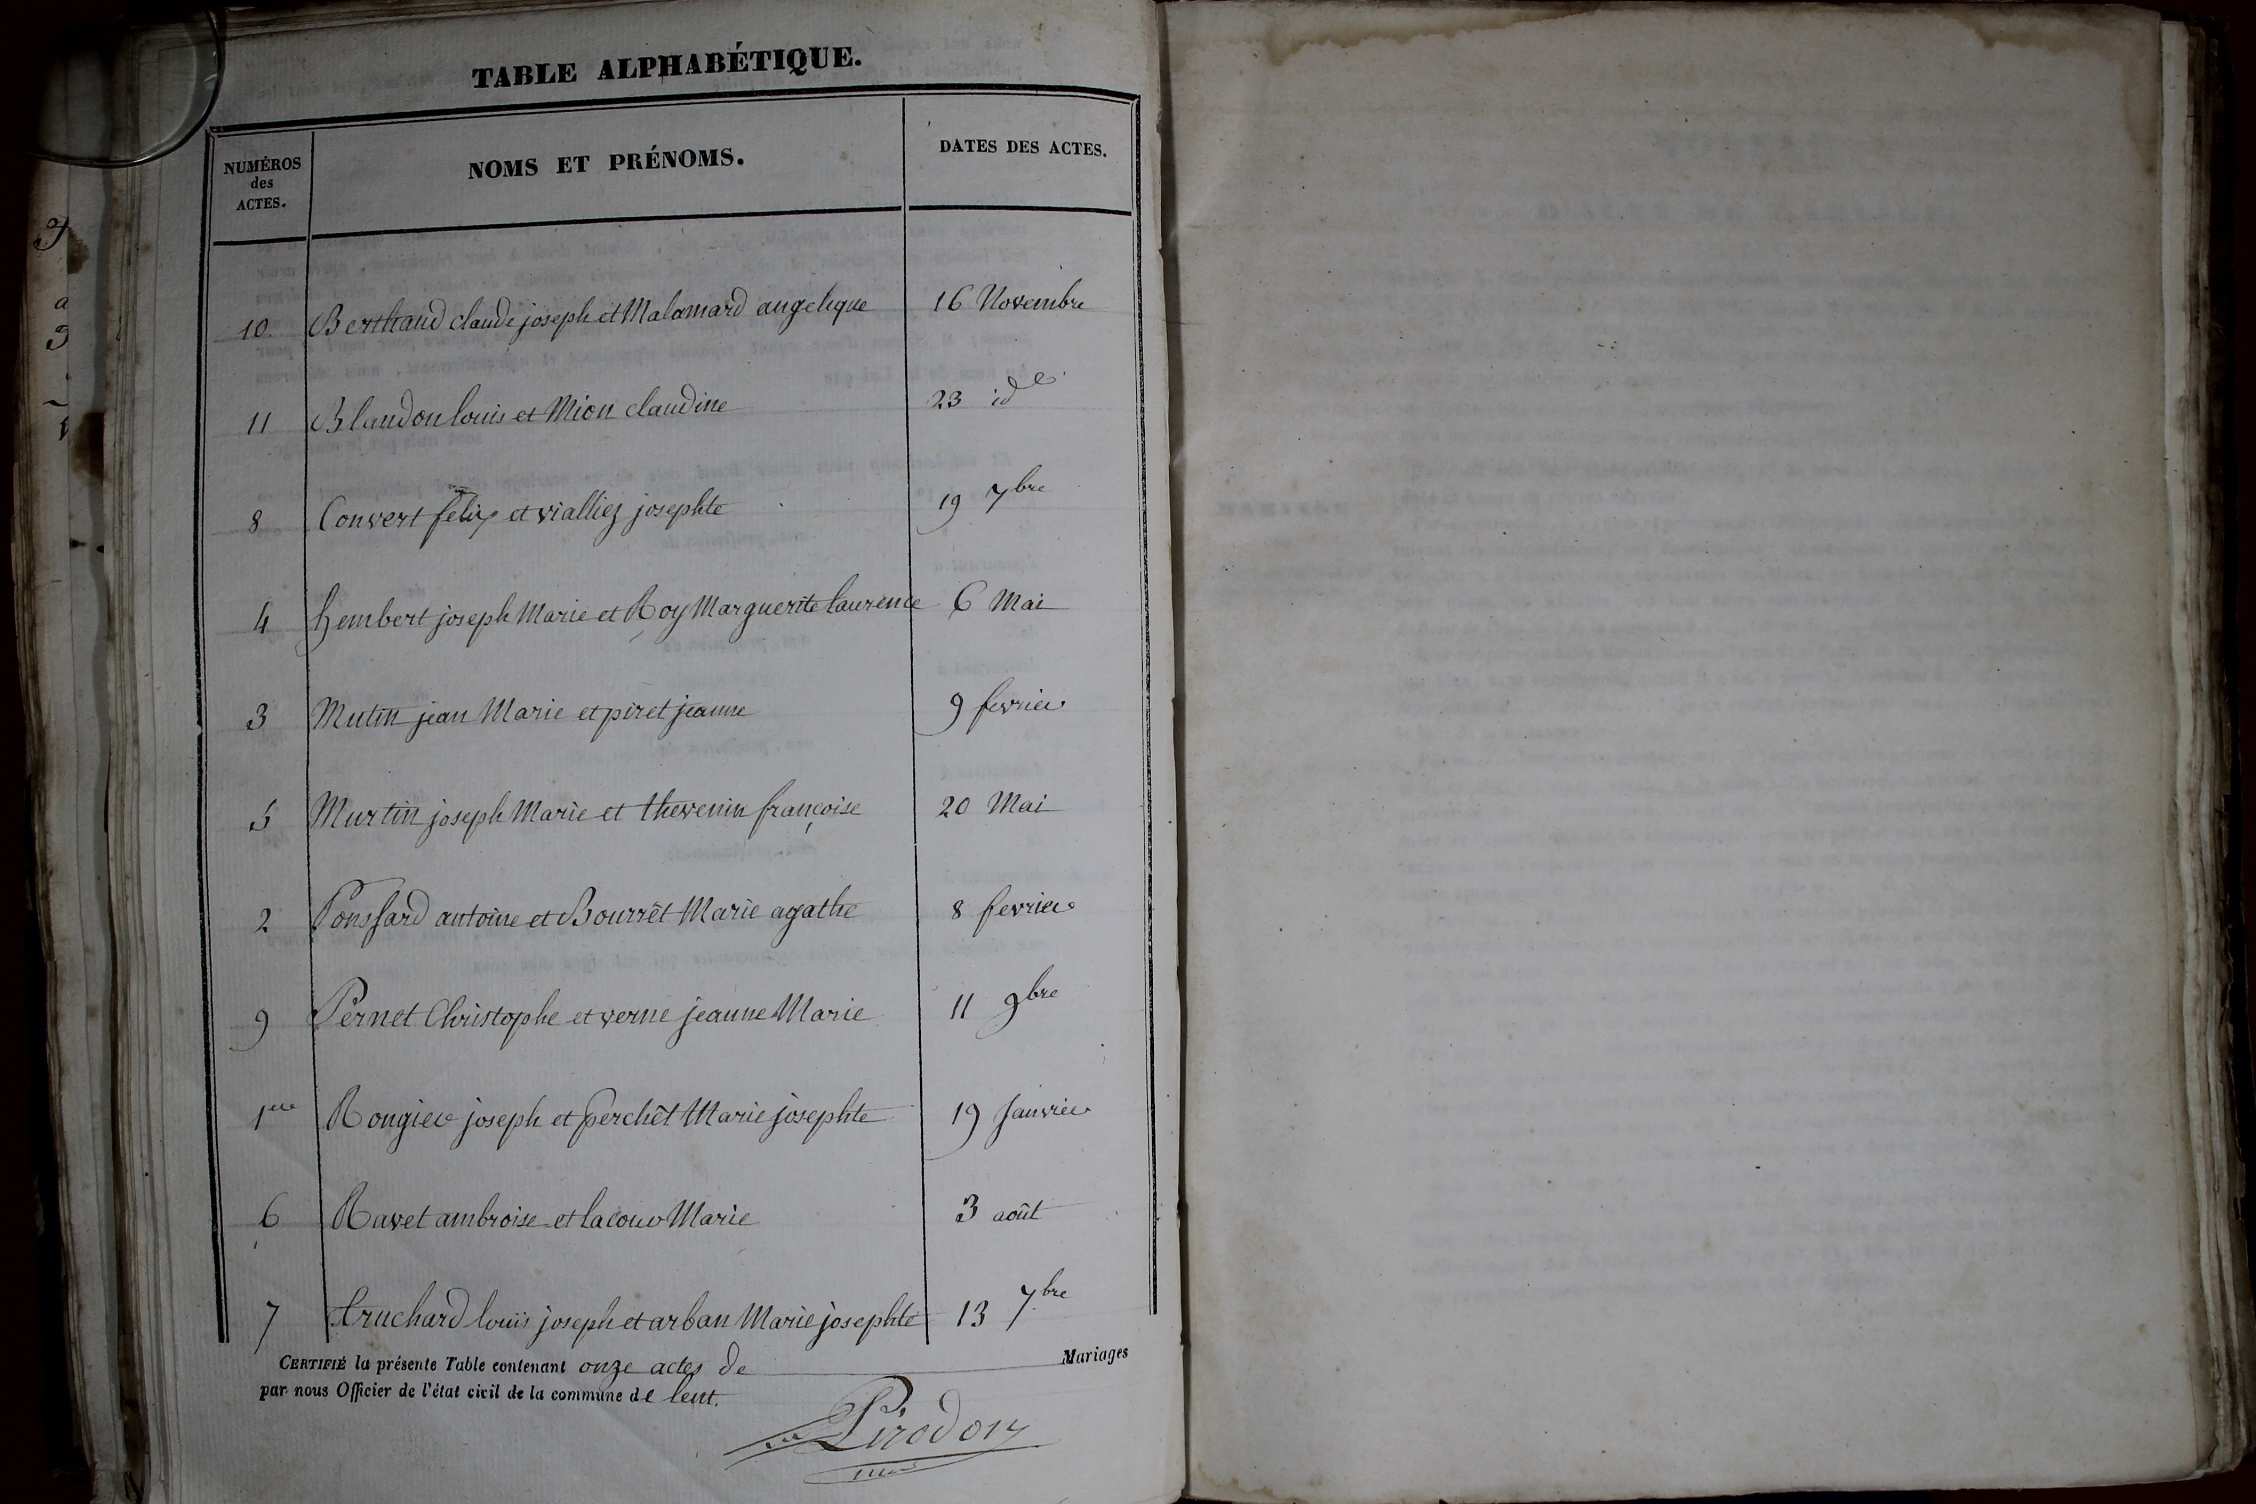 TABLE ALPHABÉTIQUE.
NUMÉROS des ACTES. NOMS ET PRÉNOMS. DATES DES ACTES.
10. Berthaud claude joseph et Malamard angelique 16 Novembre
11 Blandon louis et Mion claudine 23 id
8 Convert felix et vialliez josephte 19 7bre
4 hembert joseph Marie et Roy Marguerite laurence 6 Mai
3 Mutin jean Marie et piret jeanne 9 fevrier
5 Murtin joseph Marie et thevenin françoise 20 Mai
2 Ponsard antoine et Bourret Marie agathe 8 fevrier
9 Pernet Christophe et verne jeanne Marie 11 9bre
1er Rongier joseph et perchet Marie josephte 19 Janvier
6 Ravet ambroise et lacour Marie 3 août
7 truchard louis joseph et arban Marie josephte 13 7bre
CERTIFIÉ la présente Table contenant onze actes de Mariages
par nous Officier de l'état civil de la commune de lent.
Pirodon